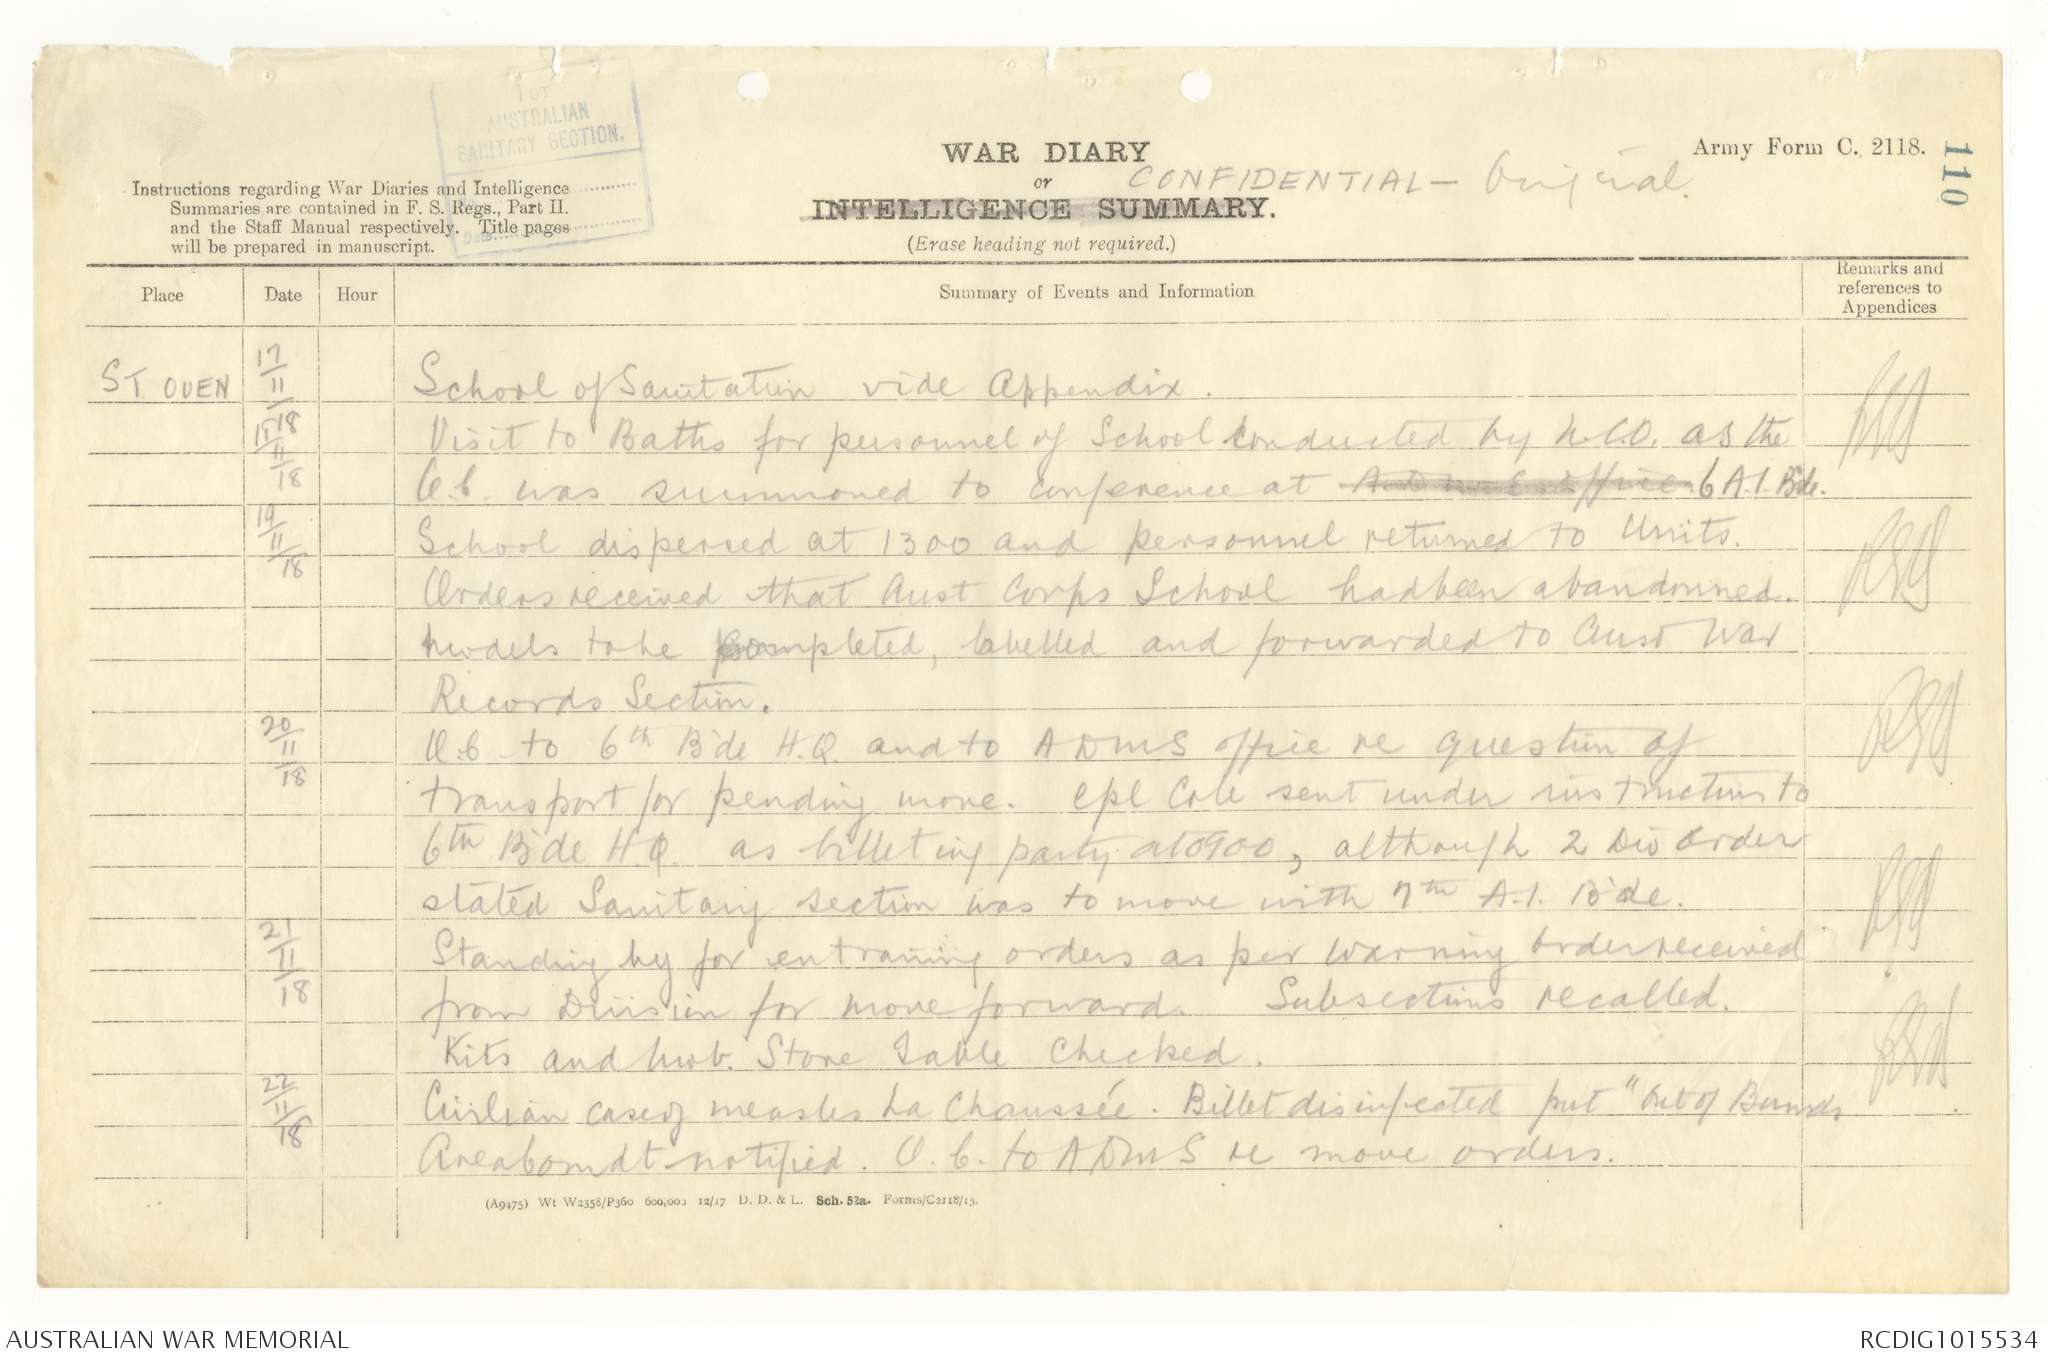 1ST
AUSTRALIAN
SANITARY SECTION.
Date
WAR DIARY
or
INTELLIGENCE SUMMARY.
(Erase heading not required.)
CONFIDENTIAL - Original.
Army Form C. 2118.
110
Instructions regarding War Diaries and Intelligence
Summaries are contained in F. S. Regs., Part II.
and the Staff Manual respectively. Title pages
will be prepared in manuscript.
Place Date Hour Summary of Events and Information Remarks and references to Appendices
ST OUEN 17/11/18 School of Sanitation vide Appendix.
18/11/18 Visit to Baths for personnel of School conducted by N.C.O. as the
O.C. was summoned to conference at A.D.M.S. office 6 A.I. B'de.
19/11/18 School dispersed at 1300 and personnel returned to Units.
Orders received that Aust Corps School had been abandonned.
Models to be completed, labelled and forwarded to Aust War
Records Section.
20/11/18 O.C. to 6th B'de H.Q. and to ADMS office re question of
transport for pending move. Cpl Cole sent under instructions to
6th B'de H.Q. as billeting party at 0900, although 2 Div Order
stated Sanitary section was to move with 7th A.I. B'de.
21/11/18 Standing by for entraining orders as per warning order received
from Division for move forward. Subsections recalled.
Kits and Mob. Store Table checked.
22/11/18 Civilian case of measles La Chaussée. Billet disinfected put "Out of Bounds
Area Comdt notified. O.C. to ADMS re move orders.
(A9475) Wt W2358/P360 600,000 12/17 D. D. & L. Sch. 52a. Forms/C2118/15.
AUSTRALIAN WAR MEMORIAL
RCDIG1015534